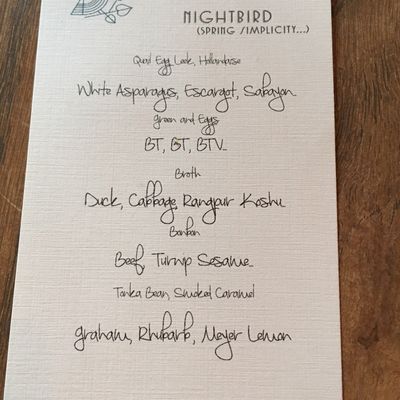 NIGHTBIRD
(SPRING SIMPLICITY...)
Quail Egg, Leek, Hollandaise
White Asparagus, Escargot, Sabayon
Green and Eggs
BT, BT, BTV
Broth
Duck, Cabbage, Rangpur Koshu
Bonbon
Beef, Turnip Sesame
Tonka Bean, Smoked Caramel
Graham, Rhubarb, Meyer Lemon